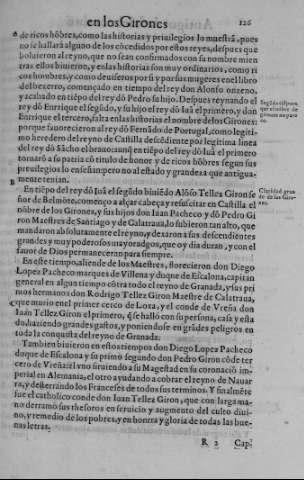 en los Girones 126
de ricos hõbres, como las historias y priuilegios lo muestrã, pues
no se hallarà alguno de los cõcedidos por estos reyes, despues que
boluieron al reyno, que no sean confirmados con su nombre mien
tras ellos biuierõ, y estas historias son muy ordinarios, como ri
cos hombres, y como deuisseros por si y por sus mugeres en el libro
del bezerro, començado en tiempo del rey don Alonso onzeno,
y acabado en tiẽpo del rey dõ Pedro su hijo. Despues reynando el
rey dõ Enrique el segũdo, y su hijo el rey dõ Iuã el primero, y don
Enrique el tercero, falta en las historias el nombre de los Girones:
porque fauorecieron al rey dõ Fernãdo de Portugal, como legiti-
mo heredero del reyno de Castilla descẽdiente por legitima linea
del rey dõ Sãcho el brauo: aunq̃ en tiẽpo del rey dõ Iuã el primero
tornarõ a su patria cõ titulo de honor y de ricos hõbres segun sus
priuilegios lo enseñan: pero no al estado y grandeza que antigua-
mente tenian.
B En tiẽpo del rey dõ Iuã el segũdo biuiẽdo Alõso Tellez Gironse
ñor de Belmõte, començo a alçar cabeça y resuscitar en Castilla el
nõbre de los Girones, y sus hijos don Iuan Pacheco y dõ Pedro Gi
ron Maestres de Santiago y de Calatraua, lo subieron tan alto, que
mandaron absolutamente el reyno, y dexaron a sus descendiẽtes
grandes y muy poderosos mayoradgos, que oy dia duran, y con el
fauor de Dios permaneceran para siempre.
En este tiempo, aliende de los Maestres, florecieron don Diego
Lopez Pacheco marques de Villena y duque de Escalona, capitan
general en algun tiempo cõtra todo el reyno de Granada, y los pri
mos hermanos don Rodrigo Tellez Giron Maestre de Calatraua,
que murio en el primer cerco de Loxa, y el conde de Vreña don
Iuan Tellez Giron el primero, q̃ se hallò con su persona, casa y esta
do, haziendo grandes gastos, y poniendose en grãdes peligros en
toda la conquista del reyno de Granada.
Tambien biuieron en estos tiempos don Diego Lopez Pacheco
duque de Escalona y su primo segundo don Pedro Giron cõde ter
cero de Vreña: el vno siruiendo a su Magestad en su coronaciõ im-
perial en Alemania, el otro ayudando a cobrar el reyno de Nauar
ra, y desterrando los Franceses de todos sus terminos. Y finalmẽte
fue el catholico conde don Iuan Tellez Giron, que con larga ma-
no derramò sus thesoros en seruicio y augmento del culto diui-
no, y remedio de los pobres, y en honrra y gloria de todas las bue-
nas letras.
R 2 Cap.